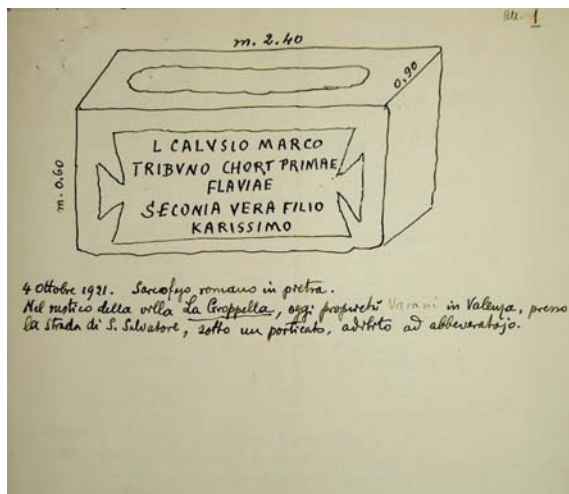 All. 1
m. 2.40
0,90
m. 0.60
L CALVSIO MARCO
TRIBVNO CHORT PRIMAE
FLAVIAE
SECONIA VERA FILIO
KARISSIMO
4 Ottobre 1921. Sarcofago romano in pietra.
Nel rustico della villa La Groppella, oggi proprietà Vacani in Valenza, presso
la strada di S. Salvatore, sotto un porticato, adibito ad abbeveratojo.